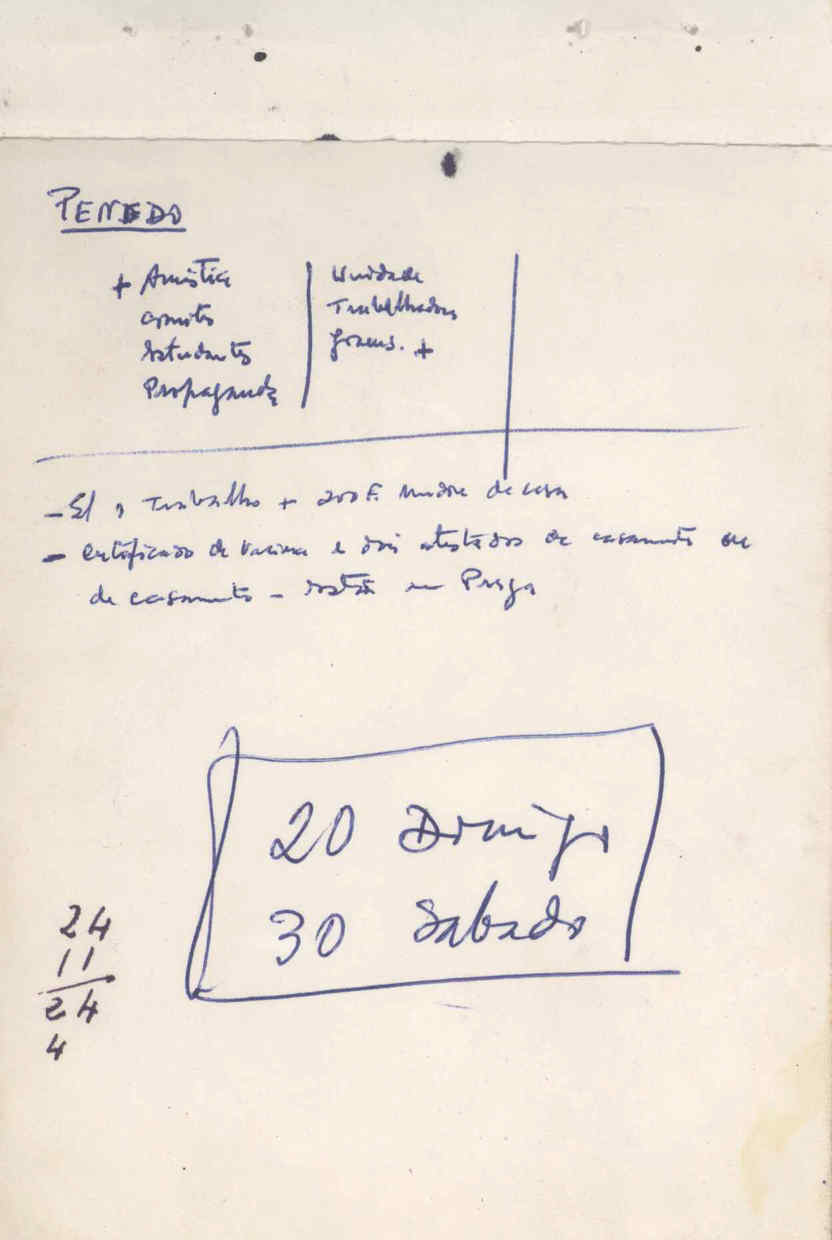 PENEDO
+ Amistia
Comités
Estudantes
Propaganda
Unidade
Trabalhadores
Jovens. +
- S/ o Trabalho + 200 F. de casa
- Certificado de vacina e dois atestados de casamento ou
de casamento - estão em Praga
20 Domingo
30 Sabado
24
11
24
4